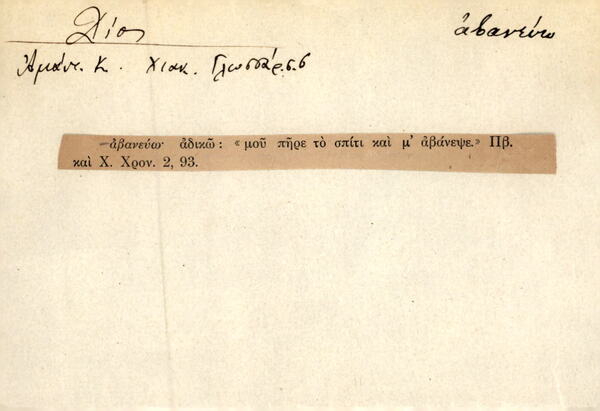 Χίος
ἀβανεύω
Ἀμάντ. Κ. Χιακ. Γλωσσάρ. σ. 6
—ἀβανεύω· ἀδικῶ: «μοῦ πῆρε τὸ σπίτι καὶ μ' ἀβάνεψε.» Πβ.
καὶ Χ. Χρον. 2, 93.